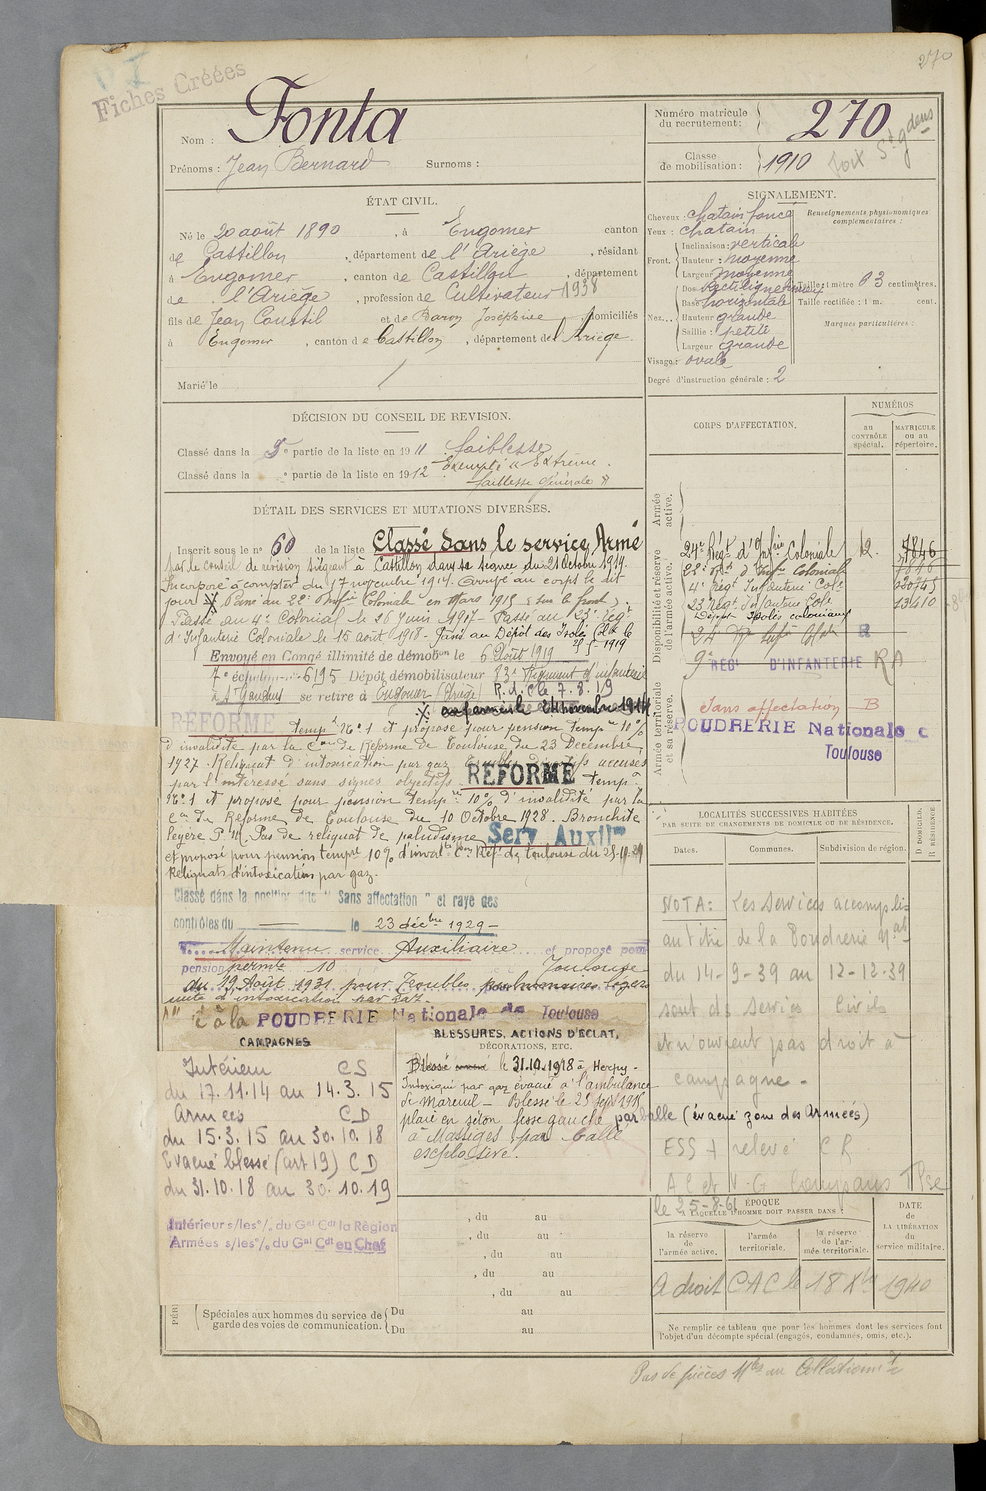 270
Fiches Créées
Nom : Fonta
Prénoms : Jean Bernard Surnoms :
Numéro matricule du recrutement : 270
Classe de mobilisation : 1910
ÉTAT CIVIL.
Né le 20 août 1890, à Engomer canton
de Castillon, département de l'Ariège, résidant
à Engomer, canton de Castillon, département
de l'Ariège, profession de Cultivateur 1938
fils de Jean et de Baron Joséphine domiciliés
à Engomer, canton de Castillon, département de l'Ariège.
Marié le
SIGNALEMENT.
Cheveux : chatain foncé
Yeux : chatain
Front. Inclinaison : verticale
Hauteur : moyenne
Largeur moyenne
Nez. Dos Rectiligne
Base horizontale
Hauteur grande
Saillie : petite
Largeur grande
Visage : ovale
Degré d'instruction générale : 2
Renseignements physionomiques complémentaires :
Taille : 1 mètre 63 centimètres.
Taille rectifiée : 1 m. cent.
Marques particulières :
DÉCISION DU CONSEIL DE REVISION.
Classé dans la 5e partie de la liste en 1911 faiblesse
Classé dans la e partie de la liste en 1912 Exempté "Extrème
faiblesse générale"
DÉTAIL DES SERVICES ET MUTATIONS DIVERSES.
Inscrit sous le n° 60 de la liste Classé dans le service Armé
par le conseil de revision siégeant à Castillon dans sa séance du 21 Octobre 1914.
Incorporé à compter du 17 novembre 1914. Arrivé au corps le dit
jour Passé au 22e Inf Coloniale en Mars 1915 (sur le front).
Passé au 4e Colonial le 26 juin 1917 - Passé au 23e Régt
d'Infanterie Coloniale le 15 août 1918 - Passé au Dépôt des Isolés
Envoyé en Congé illimité de démobon le 6 Août 1919
7e échelon n° 6195 Dépôt démobilisateur 83e Régiment d'infanterie
à St Gaudens se retire à Engomer (Ariège) R.d.C le 7.8.19
REFORMÉ tempre N° 1 et proposé pour pension tempre 10%
d'invalidité par la Con de Réforme de Toulouse du 23 Décembre
1927. Reliquat d'intoxication par gaz accusés
par l'intéressé sans signes objectifs REFORMÉ tempre
N° 1 et proposé pour pension tempre 10% d'invalidité par la
Con de Réforme de Toulouse du 10 Octobre 1928. Bronchite
légère Pas de reliquat de paludisme Serv Auxilre
et proposé pour pension tempre 10% d'inval Con Réf de Toulouse du
Reliquats d'intoxication par gaz.
Classé dans la position dite "Sans affectation" et rayé des
contrôles du le 23 décbre 1929
Maintenu service Auxiliaire et proposé pour
pension permte 10 Toulouse
du 19 Août 1931 pour Troubles pulmonaires légers
suite d'intoxication par gaz.
à la POUDRERIE Nationale de Toulouse
CORPS D'AFFECTATION.
NUMÉROS
au CONTRÔLE spécial.
MATRICULE ou au répertoire.
Armée active.
Disponibilité et réserve de l'armée active.
Armée territoriale et sa réserve.
24e Régt d'Infrie Coloniale 12. 7846
22e Rt d'Infie Coloniale
4e Régt Infanterie Cole
23e Régt Infanterie Cole 13410
Dépôt Isolés coloniaux
9e REGt D'INFANTERIE
Sans affectation B
POUDRERIE Nationale
Toulouse
LOCALITÉS SUCCESSIVES HABITÉES
PAR SUITE DE CHANGEMENTS DE DOMICILE OU DE RÉSIDENCE.
Dates. Communes. Subdivision de région.
D. DOMICILE.
R. RÉSIDENCE
NOTA : Les services accomplis
au titre de la Poudrerie Nale
du 14-9-39 au 12-12-39
sont des services civils
et n'ouvrent pas droit à
campagne.
CAMPAGNES
Intérieur CS
du 17.11.14 au 14.3.15
Armées CD
du 15.3.15 au 30.10.18
Evacué blessé (art 19) CD
du 31.10.18 au 30.10.19
Intérieur s/les °/. du Gal Cdt la Région
Armées s/les °/. du Gal Cdt en Chef
BLESSURES, ACTIONS D'ÉCLAT,
DÉCORATIONS, ETC.
Blessé le 31.10.1918 à Herpy -
Intoxiqué par gaz évacué à l'ambulance
de Mareuil - Blessé le 25 Sept 1915
plaie en séton fesse gauche par balle (évacué zone des Armées)
à Massiges par balle
explosive.
relevé CR
le 25-8-61
ÉPOQUE
À LAQUELLE L'HOMME DOIT PASSER DANS :
la réserve de l'armée active.
l'armée territoriale.
la réserve de l'armée territoriale.
DATE de LA LIBÉRATION du service militaire.
A droit CAC le 18 Xbre 1940
, du au
, du au
, du au
, du au
, du au
Spéciales aux hommes du service de garde des voies de communication. Du au
Du au
Ne remplir ce tableau que pour les hommes dont les services font l'objet d'un décompte spécial (engagés, condamnés, omis, etc.).
Pas de pièces